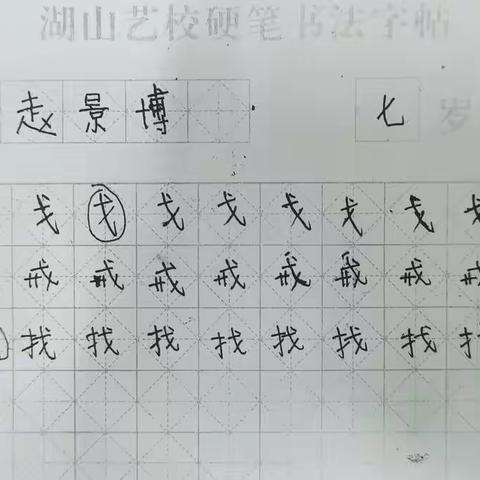 湖山艺校硬笔书法字帖
赵景博 七 岁
戈戈戈戈戈戈戈戈
戒戒戒戒戒戒戒戒
找找找找找找找找